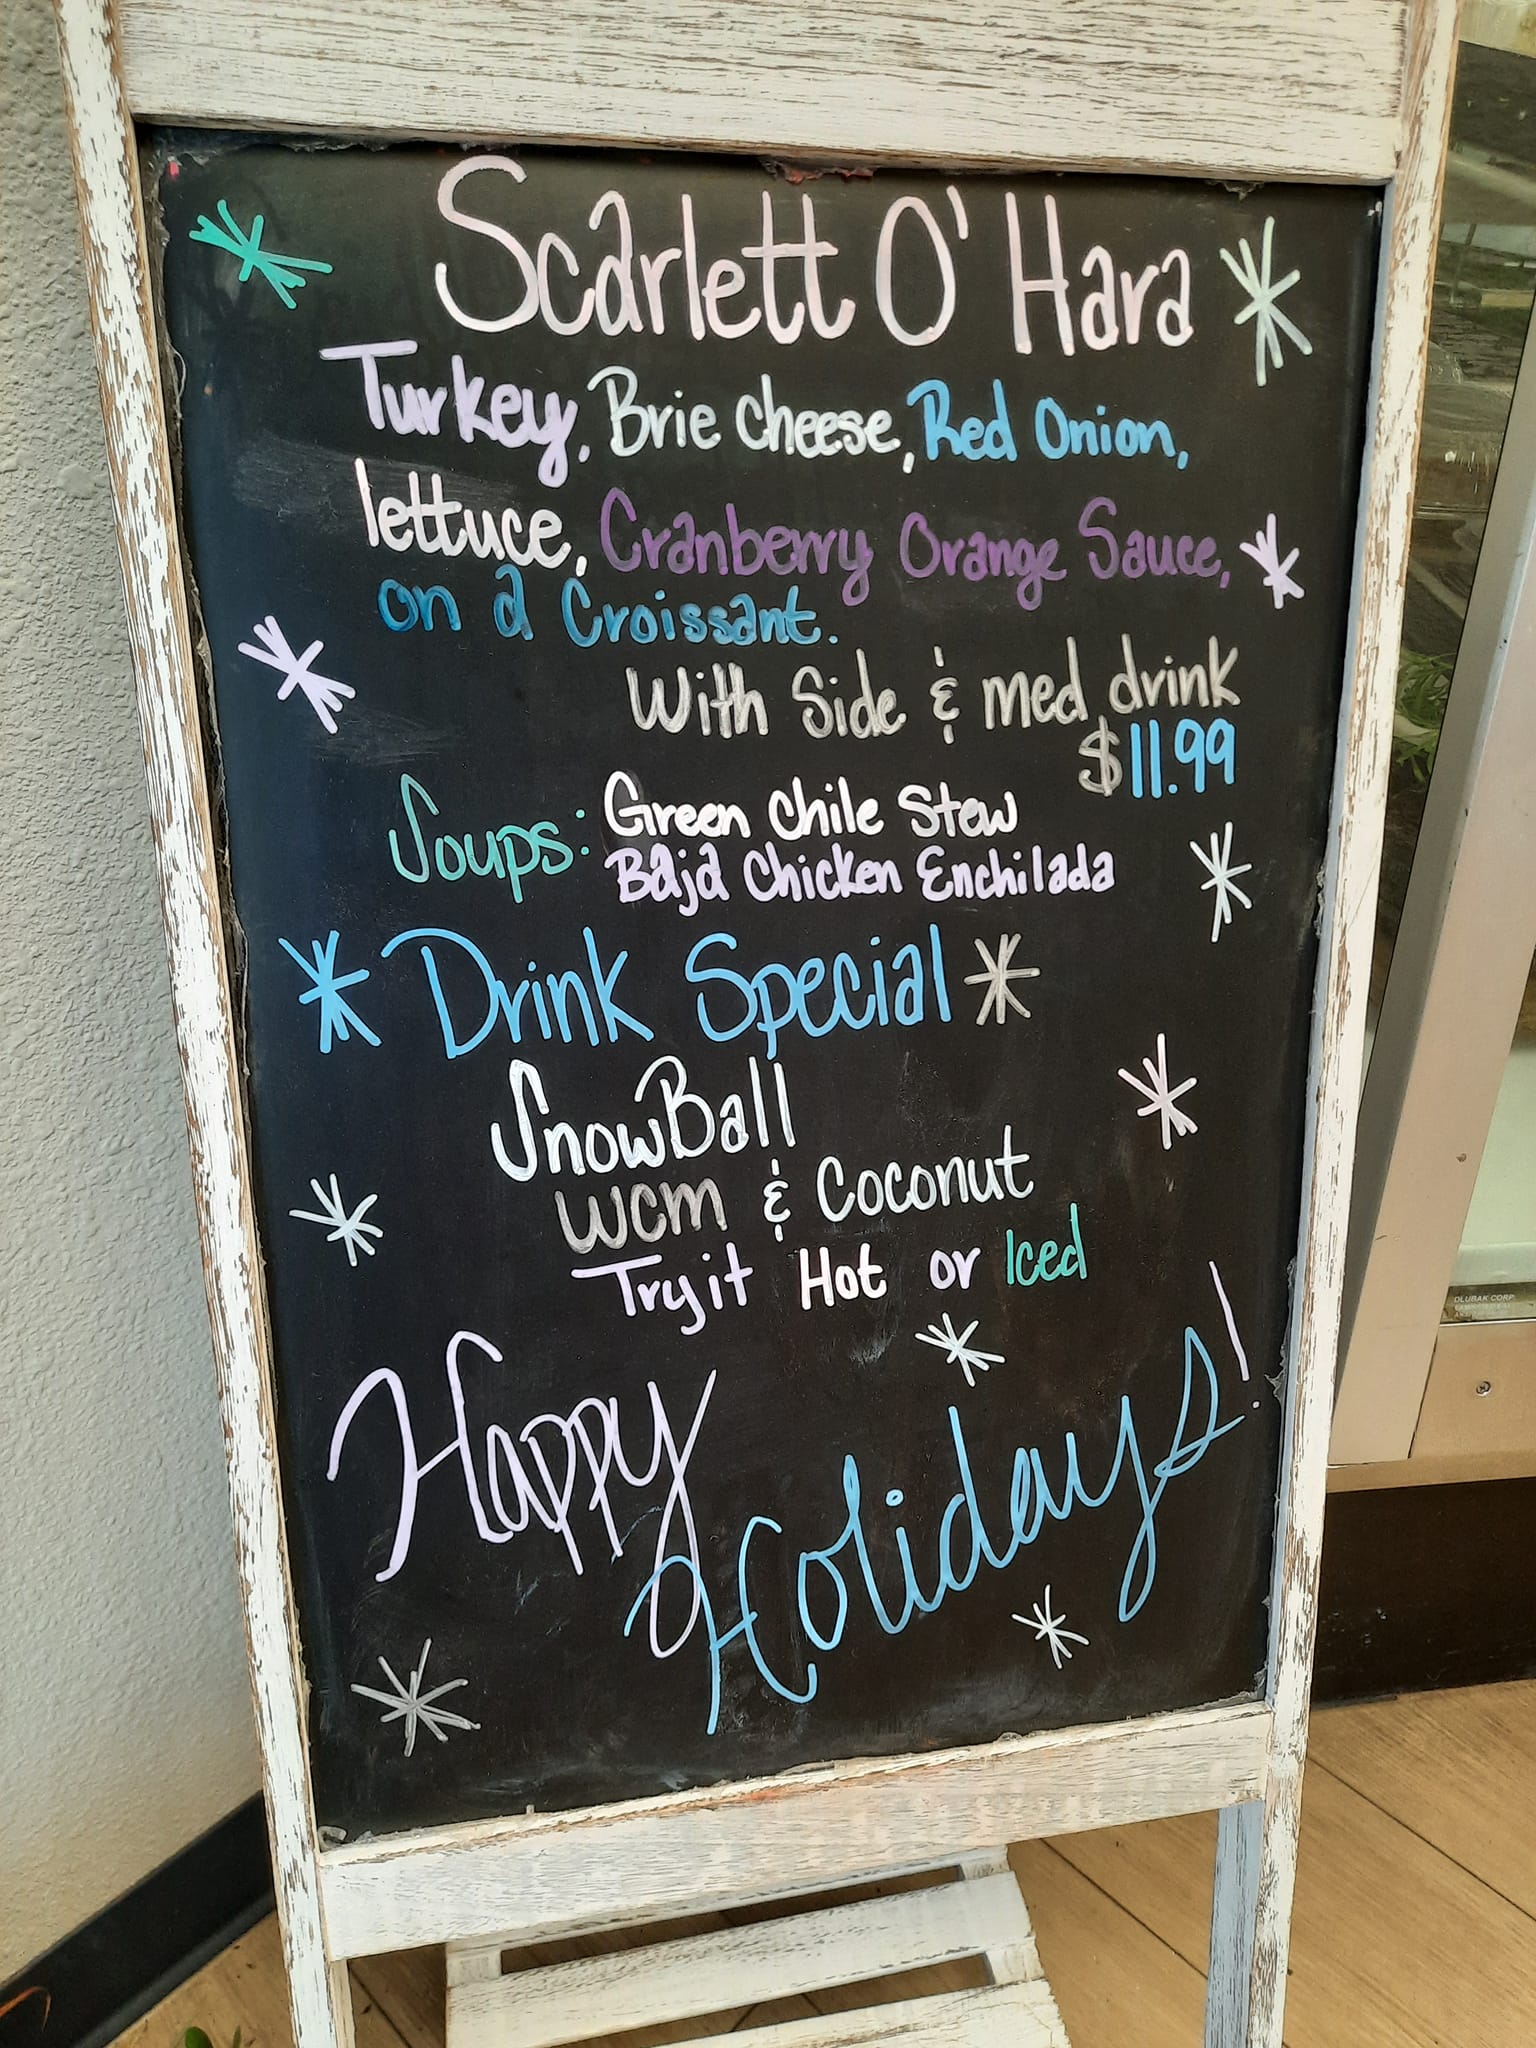 Scarlett O'Hara
Turkey, Brie Cheese, Red Onion,
lettuce, Cranberry Orange Sauce,
on a Croissant.
With Side & med drink
$11.99
Soups: Green Chile Stew
Baja Chicken Enchilada
Drink Special
SnowBall
WCM & Coconut
Try it Hot or Iced
Happy
Holidays!
OLUBAK CORP